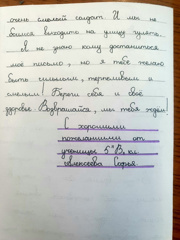 очень смелый солдат. И мы не
боимся выходить на улицу гулять.
Я не знаю кому достанется
моё письмо, но я тебе желаю
быть сильным, терпеливым и
смелым! Береги себя и своё
здоровье. Возвращайся, мы тебя ждём!
С хорошими
пожеланиями от
ученицы 5"В" кл.
Алексеева Софья